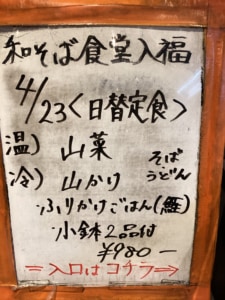 和そば食堂入福
4/23<日替定食>
温) 山菜 そば
冷) 山かけ うどん
ふりかけごはん(鮭)
小鉢2品付
¥980-
⇐入口はコチラ⇒